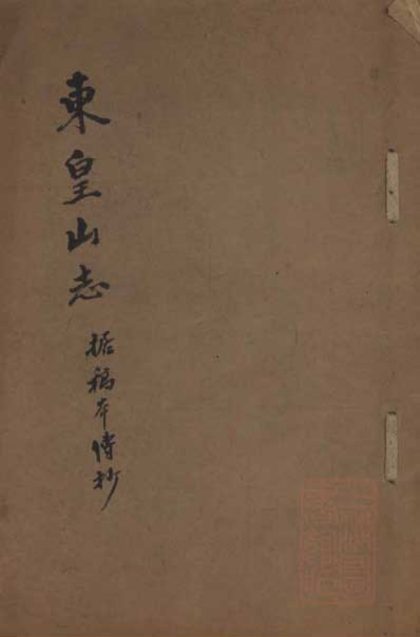 東皇山志
據稿本傳抄